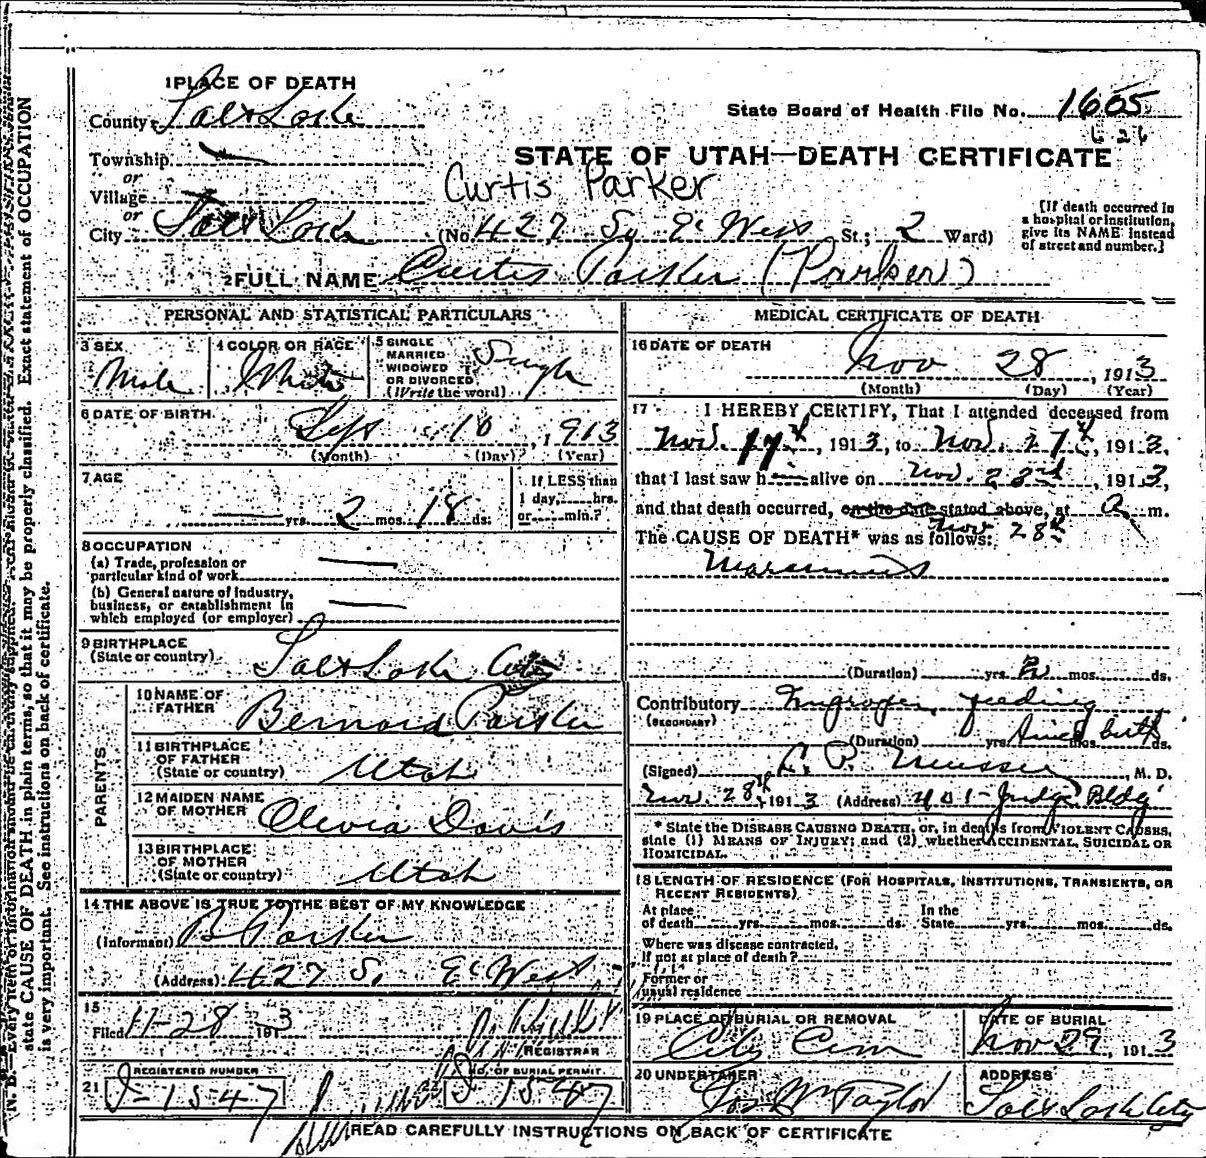 1 PLACE OF DEATH
County Salt Lake
State Board of Health File No. 1605
626
Township
or
Village
or
City Salt Lake
STATE OF UTAH—DEATH CERTIFICATE
Curtis Parker
(No. 427 So 8th West St.; 2 Ward)
[If death occurred in
a hospital or institution,
give its NAME instead
of street and number.]
2 FULL NAME Curtis Parker (Parker)
PERSONAL AND STATISTICAL PARTICULARS
3 SEX
Male
4 COLOR OR RACE
White
5 SINGLE
MARRIED
WIDOWED
OR DIVORCED
(Write the word)
Single
6 DATE OF BIRTH
Sept 10, 1913
(Month) (Day) (Year)
7 AGE
yrs. 2 mos. 18 ds.
If LESS than
1 day, hrs.
or min.?
8 OCCUPATION
(a) Trade, profession or
particular kind of work
(b) General nature of industry,
business, or establishment in
which employed (or employer)
9 BIRTHPLACE
(State or country)
Salt Lake City
PARENTS
10 NAME OF
FATHER
Bernard Parker
11 BIRTHPLACE
OF FATHER
(State or country)
Utah
12 MAIDEN NAME
OF MOTHER
Olivia Davis
13 BIRTHPLACE
OF MOTHER
(State or country)
Utah
14 THE ABOVE IS TRUE TO THE BEST OF MY KNOWLEDGE
(Informant) B Parker
(Address) 427 So 8th West
15
Filed 11-28 1913
REGISTRAR
21
REGISTERED NUMBER
D-1547
NO. OF BURIAL PERMIT
D 1547
MEDICAL CERTIFICATE OF DEATH
16 DATE OF DEATH
Nov 28, 1913
(Month) (Day) (Year)
17 I HEREBY CERTIFY, That I attended deceased from
Nov. 17th, 1913, to Nov. 27th, 1913,
that I last saw h alive on Nov. 23rd, 1913,
and that death occurred, on the date stated above, at A. m.
Nov 28th
The CAUSE OF DEATH* was as follows:
Marasmus
(Duration) yrs. 2 mos. ds.
Contributory Improper feeding
(SECONDARY)
(Duration) yrs. Since birth mos. ds.
(Signed) M. D.
Nov. 28th, 1913 (Address) 401 Judge Bldg
* State the DISEASE CAUSING DEATH, or, in deaths from VIOLENT CAUSES,
state (1) MEANS OF INJURY; and (2) whether ACCIDENTAL, SUICIDAL OR
HOMICIDAL.
18 LENGTH OF RESIDENCE (FOR HOSPITALS, INSTITUTIONS, TRANSIENTS, OR
RECENT RESIDENTS)
At place
of death yrs. mos. ds.
In the
State yrs. mos. ds.
Where was disease contracted,
if not at place of death?
Former or
usual residence
19 PLACE OF BURIAL OR REMOVAL
City Cem
DATE OF BURIAL
Nov 29, 1913
20 UNDERTAKER
Jos Wm Taylor
ADDRESS
Salt Lake City
READ CAREFULLY INSTRUCTIONS ON BACK OF CERTIFICATE
state CAUSE OF DEATH in plain terms, so that it may be properly classified. Exact statement of OCCUPATION
is very important. See instructions on back of certificate.